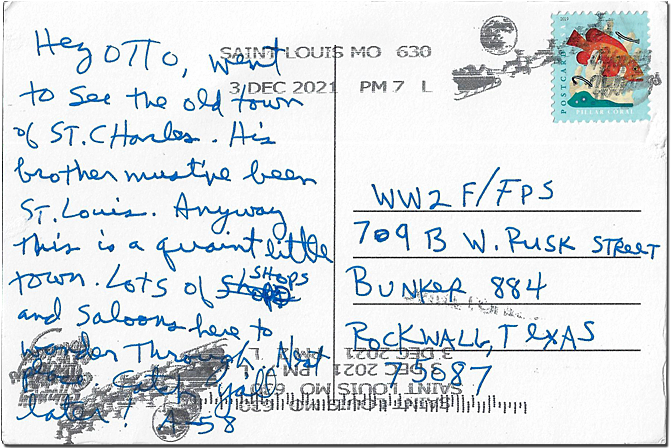 Hey OTTO, went
to see the old town
of ST. CHarles. His
brother must've been
ST. Louis. Anyway
this is a quaint little
town. Lots of shops SHOPS
and saloons here to
wonder Through. Next
place. Catch y'all
later! A-58
SAINT LOUIS MO 630
3 DEC 2021 PM 7 L
2021
POSTCARD
PILLAR CORAL
WW2 F/FPS
709 B W. RUSK STREET
BUNKER 884
ROCKWALL, TEXAS
75087
3 DEC 2021 PM
SAINT LOUIS MO 630
3 DEC 2021 PM
SAINT LOUIS MO 630